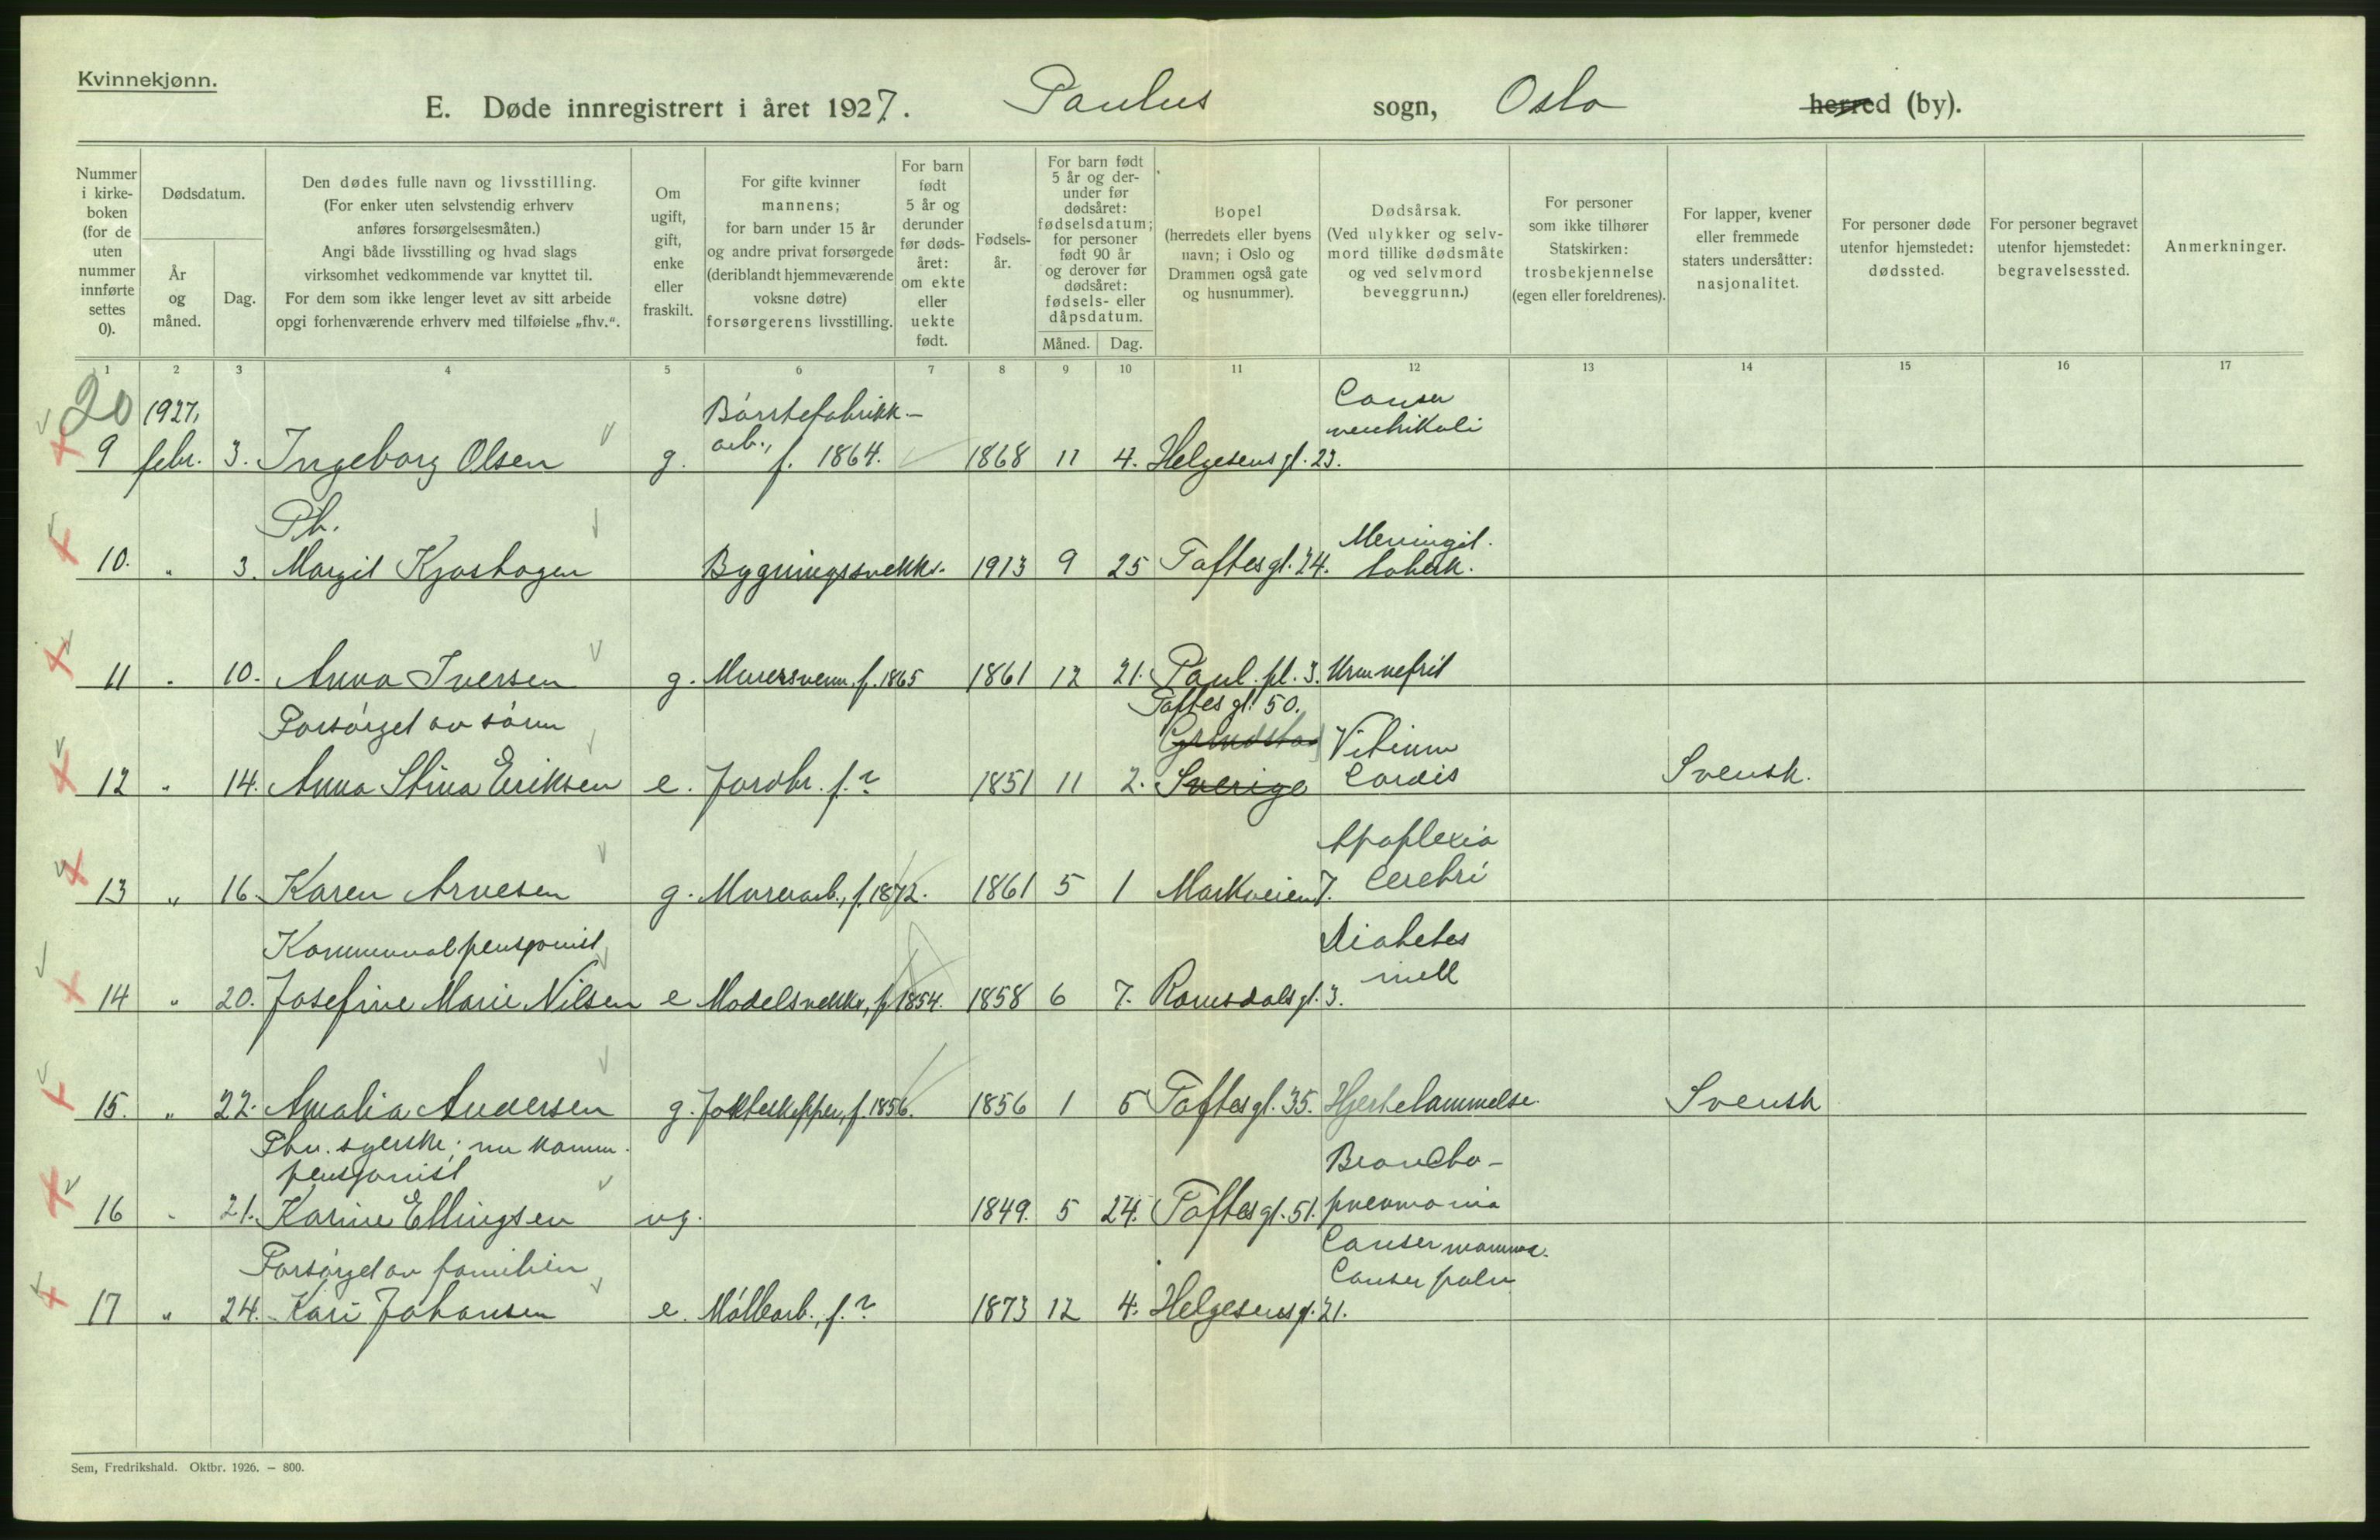 Kvinnekjønn.
E. Døde innregistrert i året 1927. Paulus sogn, Oslo herred (by).
Nummer i kirke-boken (for de uten nummer innførte settes 0).
Dødsdatum.
År og måned.
Dag.
Den dødes fulle navn og livsstilling.
(For enker uten selvstendig erhverv
anføres forsørgelsesmåten.)
Angi både livsstilling og hvad slags
virksomhet vedkommende var knyttet til.
For dem som ikke lenger levet av sitt arbeide
opgi forhenværende erhverv med tilføielse „fhv.“.
Om ugift, gift, enke eller fraskilt.
For gifte kvinner
mannens;
for barn under 15 år
og andre privat forsørgede
(deriblandt hjemmeværende
voksne døtre)
forsørgerens livsstilling.
For barn født 5 år og derunder før døds-året: om ekte eller uekte født.
Fødsels-år.
For barn født 5 år og der-under før dødsåret: fødselsdatum; for personer født 90 år og derover før dødsåret: fødsels- eller dåpsdatum.
Måned. Dag.
Bopel
(herredets eller byens
navn; i Oslo og
Drammen også gate
og husnummer).
Dødsårsak.
(Ved ulykker og selv-
mord tillike dødsmåte
og ved selvmord
beveggrunn.)
For personer
som ikke tilhører
Statskirken:
trosbekjennelse
(egen eller foreldrenes).
For lapper, kvener
eller fremmede
staters undersåtter:
nasjonalitet.
For personer døde
utenfor hjemstedet:
dødssted.
For personer begravet
utenfor hjemstedet:
begravelsessted.
Anmerkninger.
1 2 3 4 5 6 7 8 9 10 11 12 13 14 15 16 17
20 1927, Børstefabrikk- Canser
arb., ventrikuli
9 febr. 3. Ingeborg Olsen g. f. 1864. 1868 11 4. Helgesens gt. 23.
Meningit.
10. " 3. Margit Kjøshagen Bygningssnekker. 1913 9 25 Toftes gt. 24. tuberk.
11 " 10. Anna Iversen g. Murersvenn. f. 1865 1861 12 21. Paul. pl. 3. Urm nefrit
Forsørget av sønn Toftes gt. 50.
Grindstad Vitium
12 " 14. Anna Stina Eriksen e. Jordbr. f. ? 1851 11 2. Sverige Cordis Svensk.
Apoplexia
13 " 16. Karen Arnesen g. Murerarb., f. 1872. 1861 5 1 Markveien 7. Cerebri
Kommunalpensjonist Diabetes
mell
14 " 20. Josefine Marie Nilsen e Modelsnekker, f. 1854. 1858 6 7. Romsdals gt. 3.
15. " 22. Amalia Andersen g. Jakteskipper, f. 1856. 1856 1 5 Toftes gt. 35. Hjertelammelse. Svensk
Fhv. syerske; nu komm. Broncho-
pensjonist
16 " 21. Karine Ellingsen ug. 1849. 5 24. Toftes gt. 51. pneomonia
Forsørget av familien Canser mamma.
Canser pulm
17 " 24. Kari Johansen e. Møllearb., f. ? 1873 12 4. Helgesens gt. 21.
Sem, Fredrikshald. Oktbr. 1926. – 800.